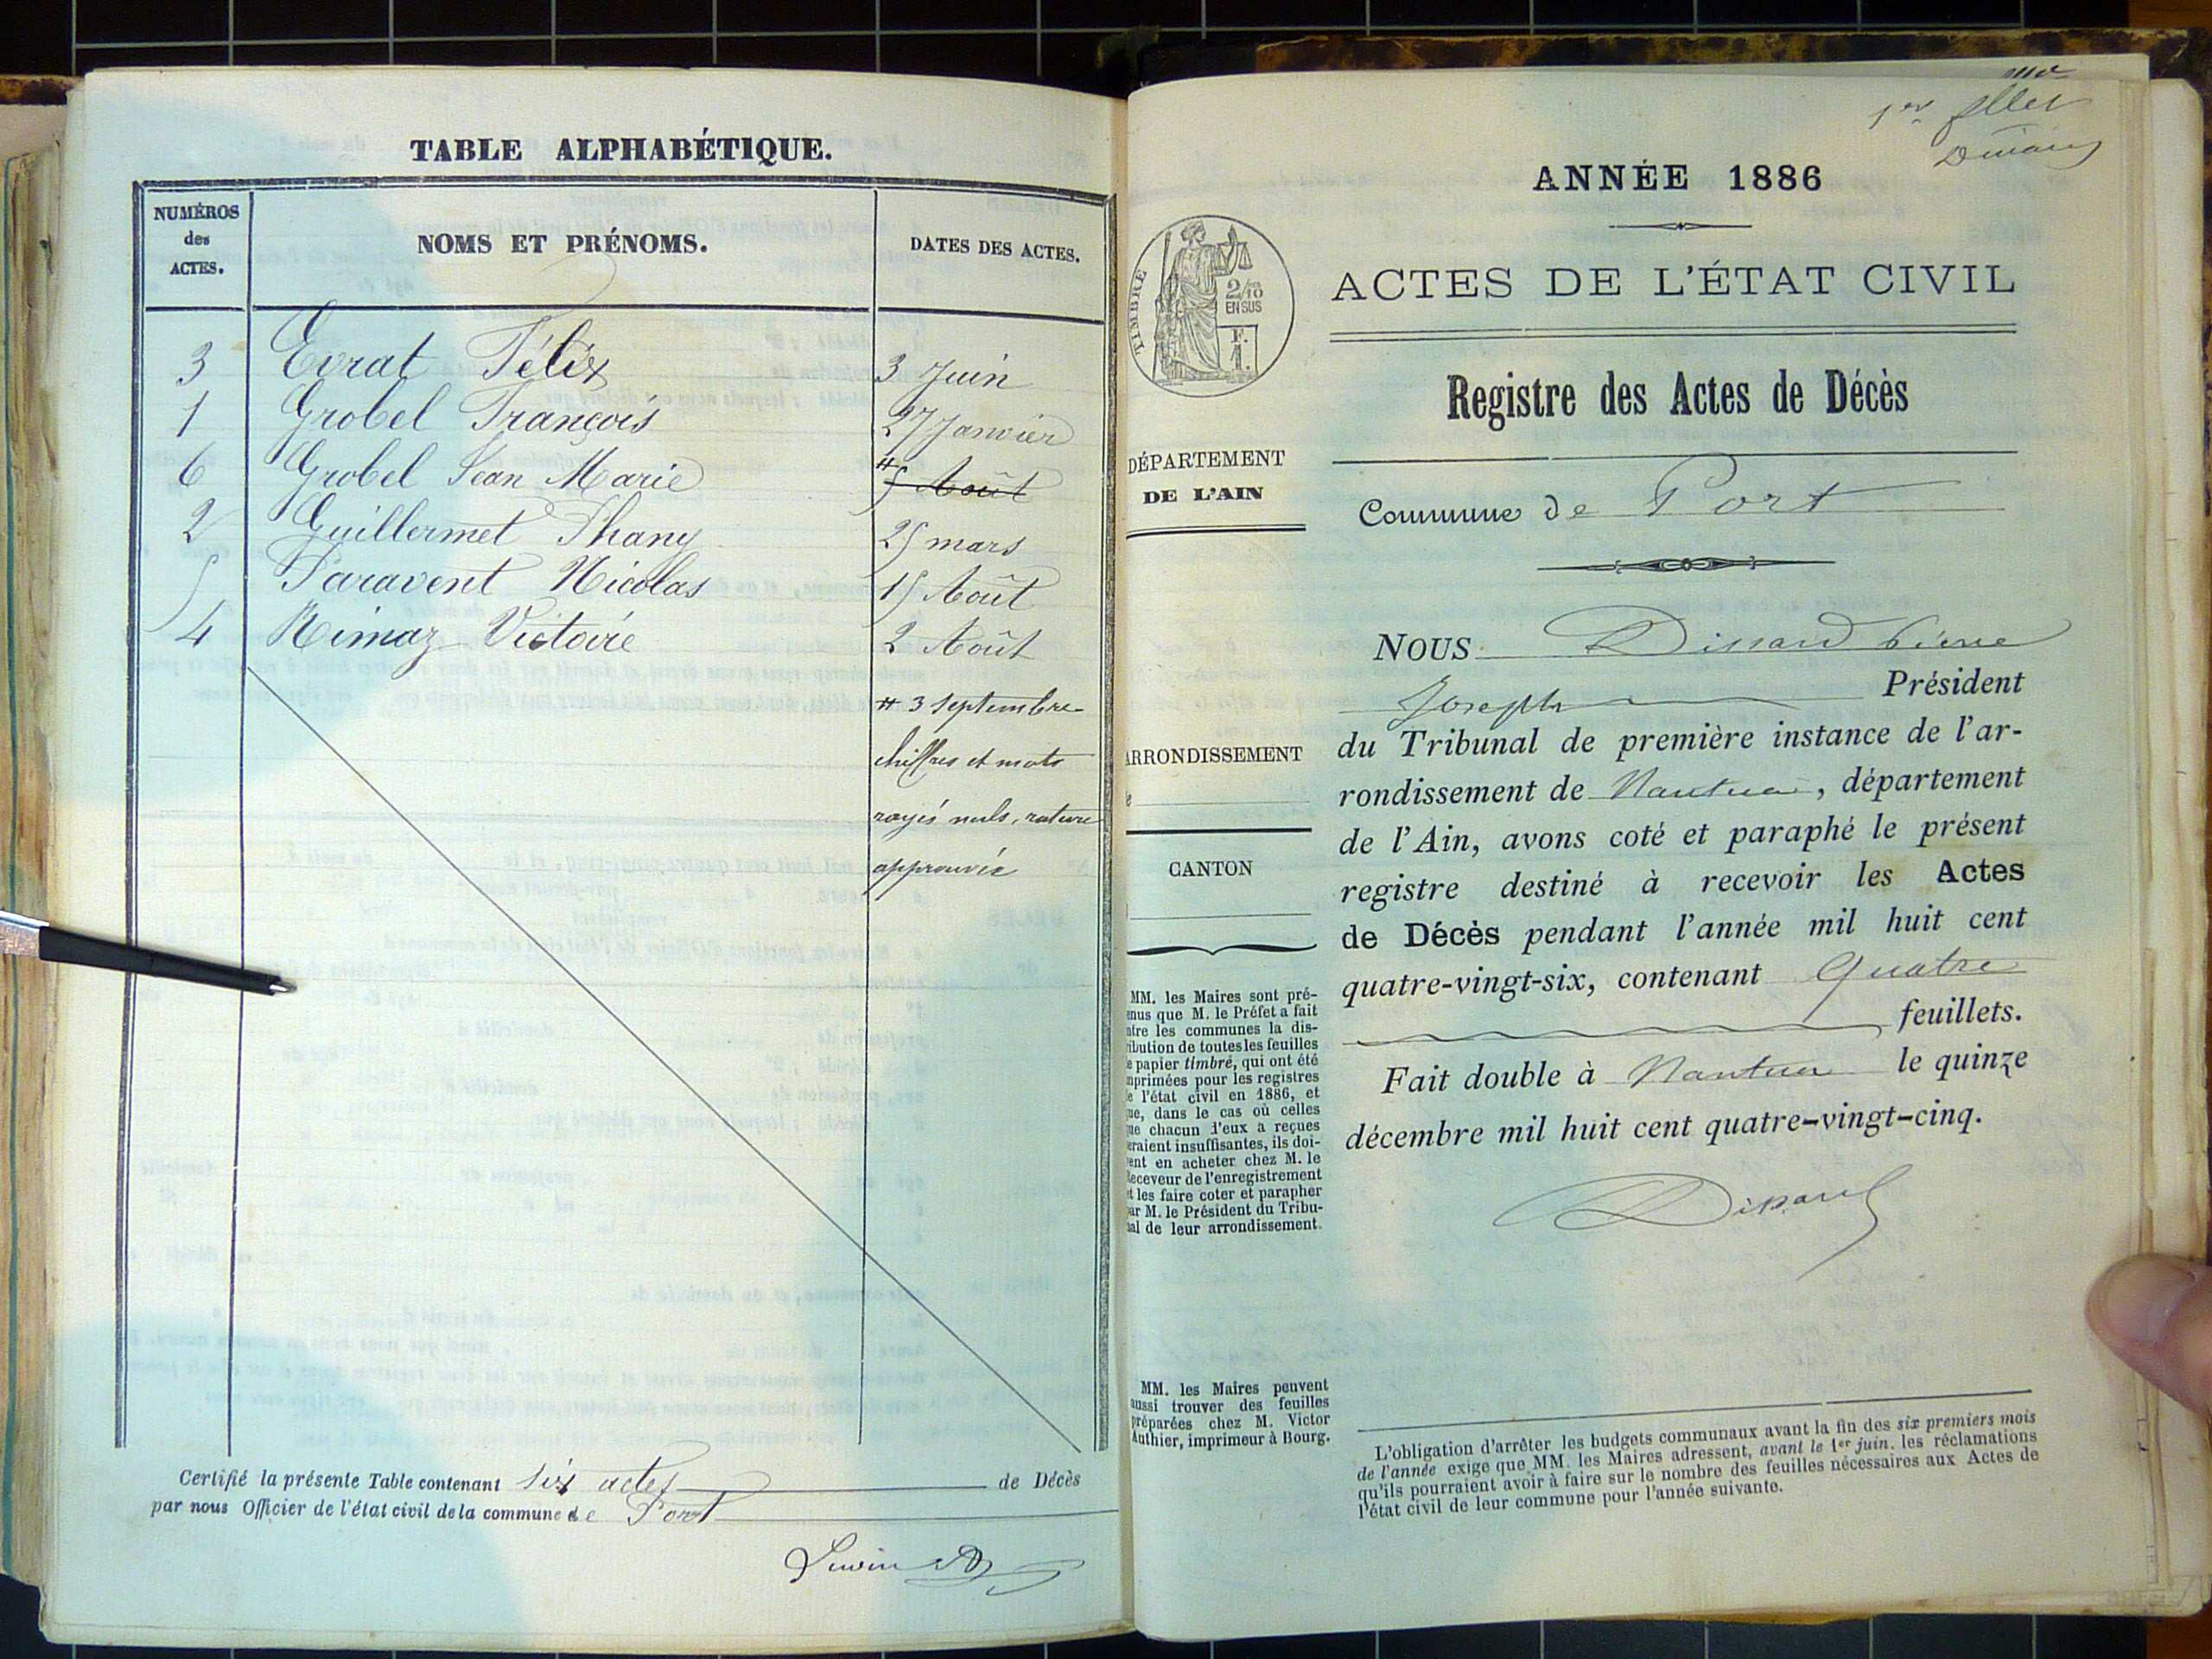 TABLE ALPHABÉTIQUE.
NUMÉROS des ACTES.
NOMS ET PRÉNOMS.
DATES DES ACTES.
3 Evrat Félix 3 Juin
1 Grobel François 27 Janvier
6 Grobel Jean Marie # 5 Août
2 Guillermet Phany 25 mars
5 Paravent Nicolas 15 Août
4 Rimaz Victoire 2 Août
# 3 septembre
chiffres et mots
rayés nuls, rature
approuvée
Certifié la présente Table contenant six actes de Décès
par nous Officier de l'état civil de la commune de Port
1er fllet
ANNÉE 1886
ACTES DE L'ÉTAT CIVIL
TIMBRE
2/10
EN SUS
F.
1.
Registre des Actes de Décès
DÉPARTEMENT
DE L'AIN
Commune de Port
NOUS Dissard Pierre
Joseph Président
du Tribunal de première instance de l'ar-
rondissement de Nantua, département
de l'Ain, avons coté et paraphé le présent
registre destiné à recevoir les Actes
de Décès pendant l'année mil huit cent
quatre-vingt-six, contenant Quatre
feuillets.
Fait double à Nantua le quinze
décembre mil huit cent quatre-vingt-cinq.
Dissard
ARRONDISSEMENT
CANTON
MM. les Maires sont pré-
enus que M. le Préfet a fait
ntre les communes la dis-
ribution de toutes les feuilles
e papier timbré, qui ont été
mprimées pour les registres
e l'état civil en 1886, et
ue, dans le cas où celles
ue chacun d'eux a reçues
eraient insuffisantes, ils doi-
ent en acheter chez M. le
Receveur de l'enregistrement
t les faire coter et parapher
ar M. le Président du Tribu-
nal de leur arrondissement.
MM. les Maires peuvent
aussi trouver des feuilles
préparées chez M. Victor
Authier, imprimeur à Bourg.
L'obligation d'arrêter les budgets communaux avant la fin des six premiers mois
de l'année exige que MM. les Maires adressent, avant le 1er juin. les réclamations
qu'ils pourraient avoir à faire sur le nombre des feuilles nécessaires aux Actes de
l'état civil de leur commune pour l'année suivante.